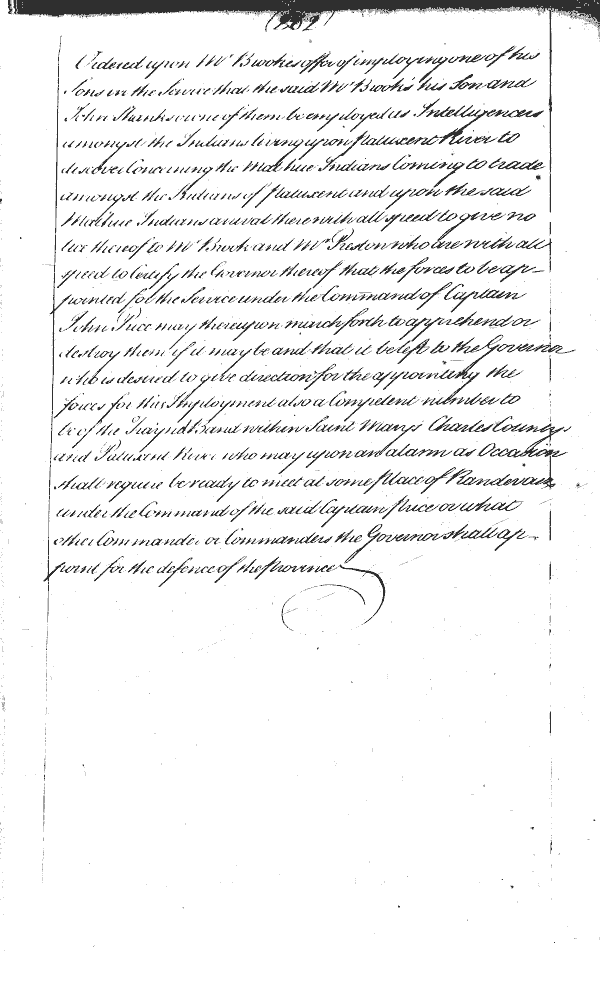 (282)
Ordered upon Mr Brookes offer of imploying one of his
Sons in the Service that the said Mr Brooks his Son and
John Shanks or one of them be employed as Intelligencers
amongst the Indians living upon Patuxent River to
discover Concerning the Matchue Indians Coming to trade
amongst the Indians of Patuxent and upon the said
Matchue Indians arival there with all speed to give no
tice thereof to Mr Brook and Mr Preston who are with all
speed to Certify the Governor thereof that the forces to be ap-
pointed for the Service under the Command of Captain
John Price may thereupon march forth to apprehend or
destroy them if it may be and that it be left to the Governor
who is desired to give direction for the appointing the
forces for this Imployment also a Competent number to
be of the Traynd Band within Saint Marys Charles County
and Patuxent River who may upon an alarm as Occasion
shall require be ready to meet at some Place of Randevauz
under the Command of the said Captain Price or what
other Commander or Commanders the Governor shall ap-
point for the defence of the Province